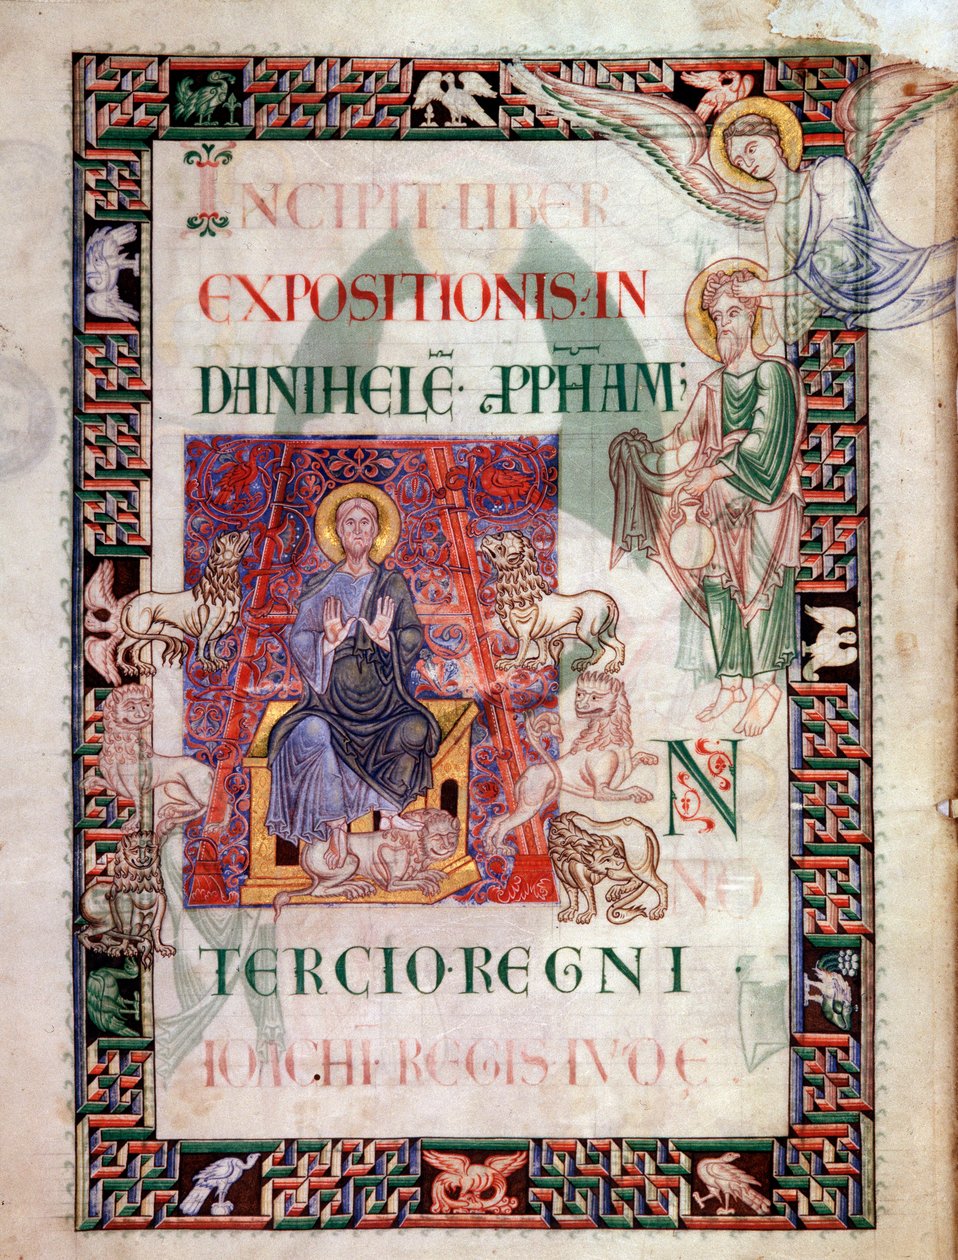 INCIPIT·LIBER
EXPOSITIONIS:·IN
DANIHELĒ·ꝓPH̄AM;
AN
NO
TERCIO·REGNI
IOACHI·REGIS·IVDE